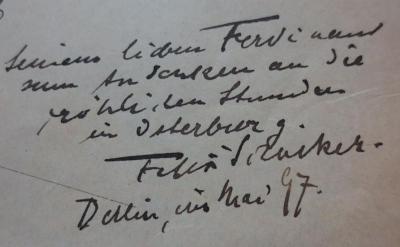 Seinem lieben Ferdinand
zum Andenken an die
fröhlichen Stunden
in Osterburg.
Felix
Berlin, im Mai 97.